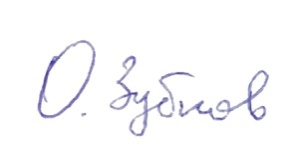 О. Зубков